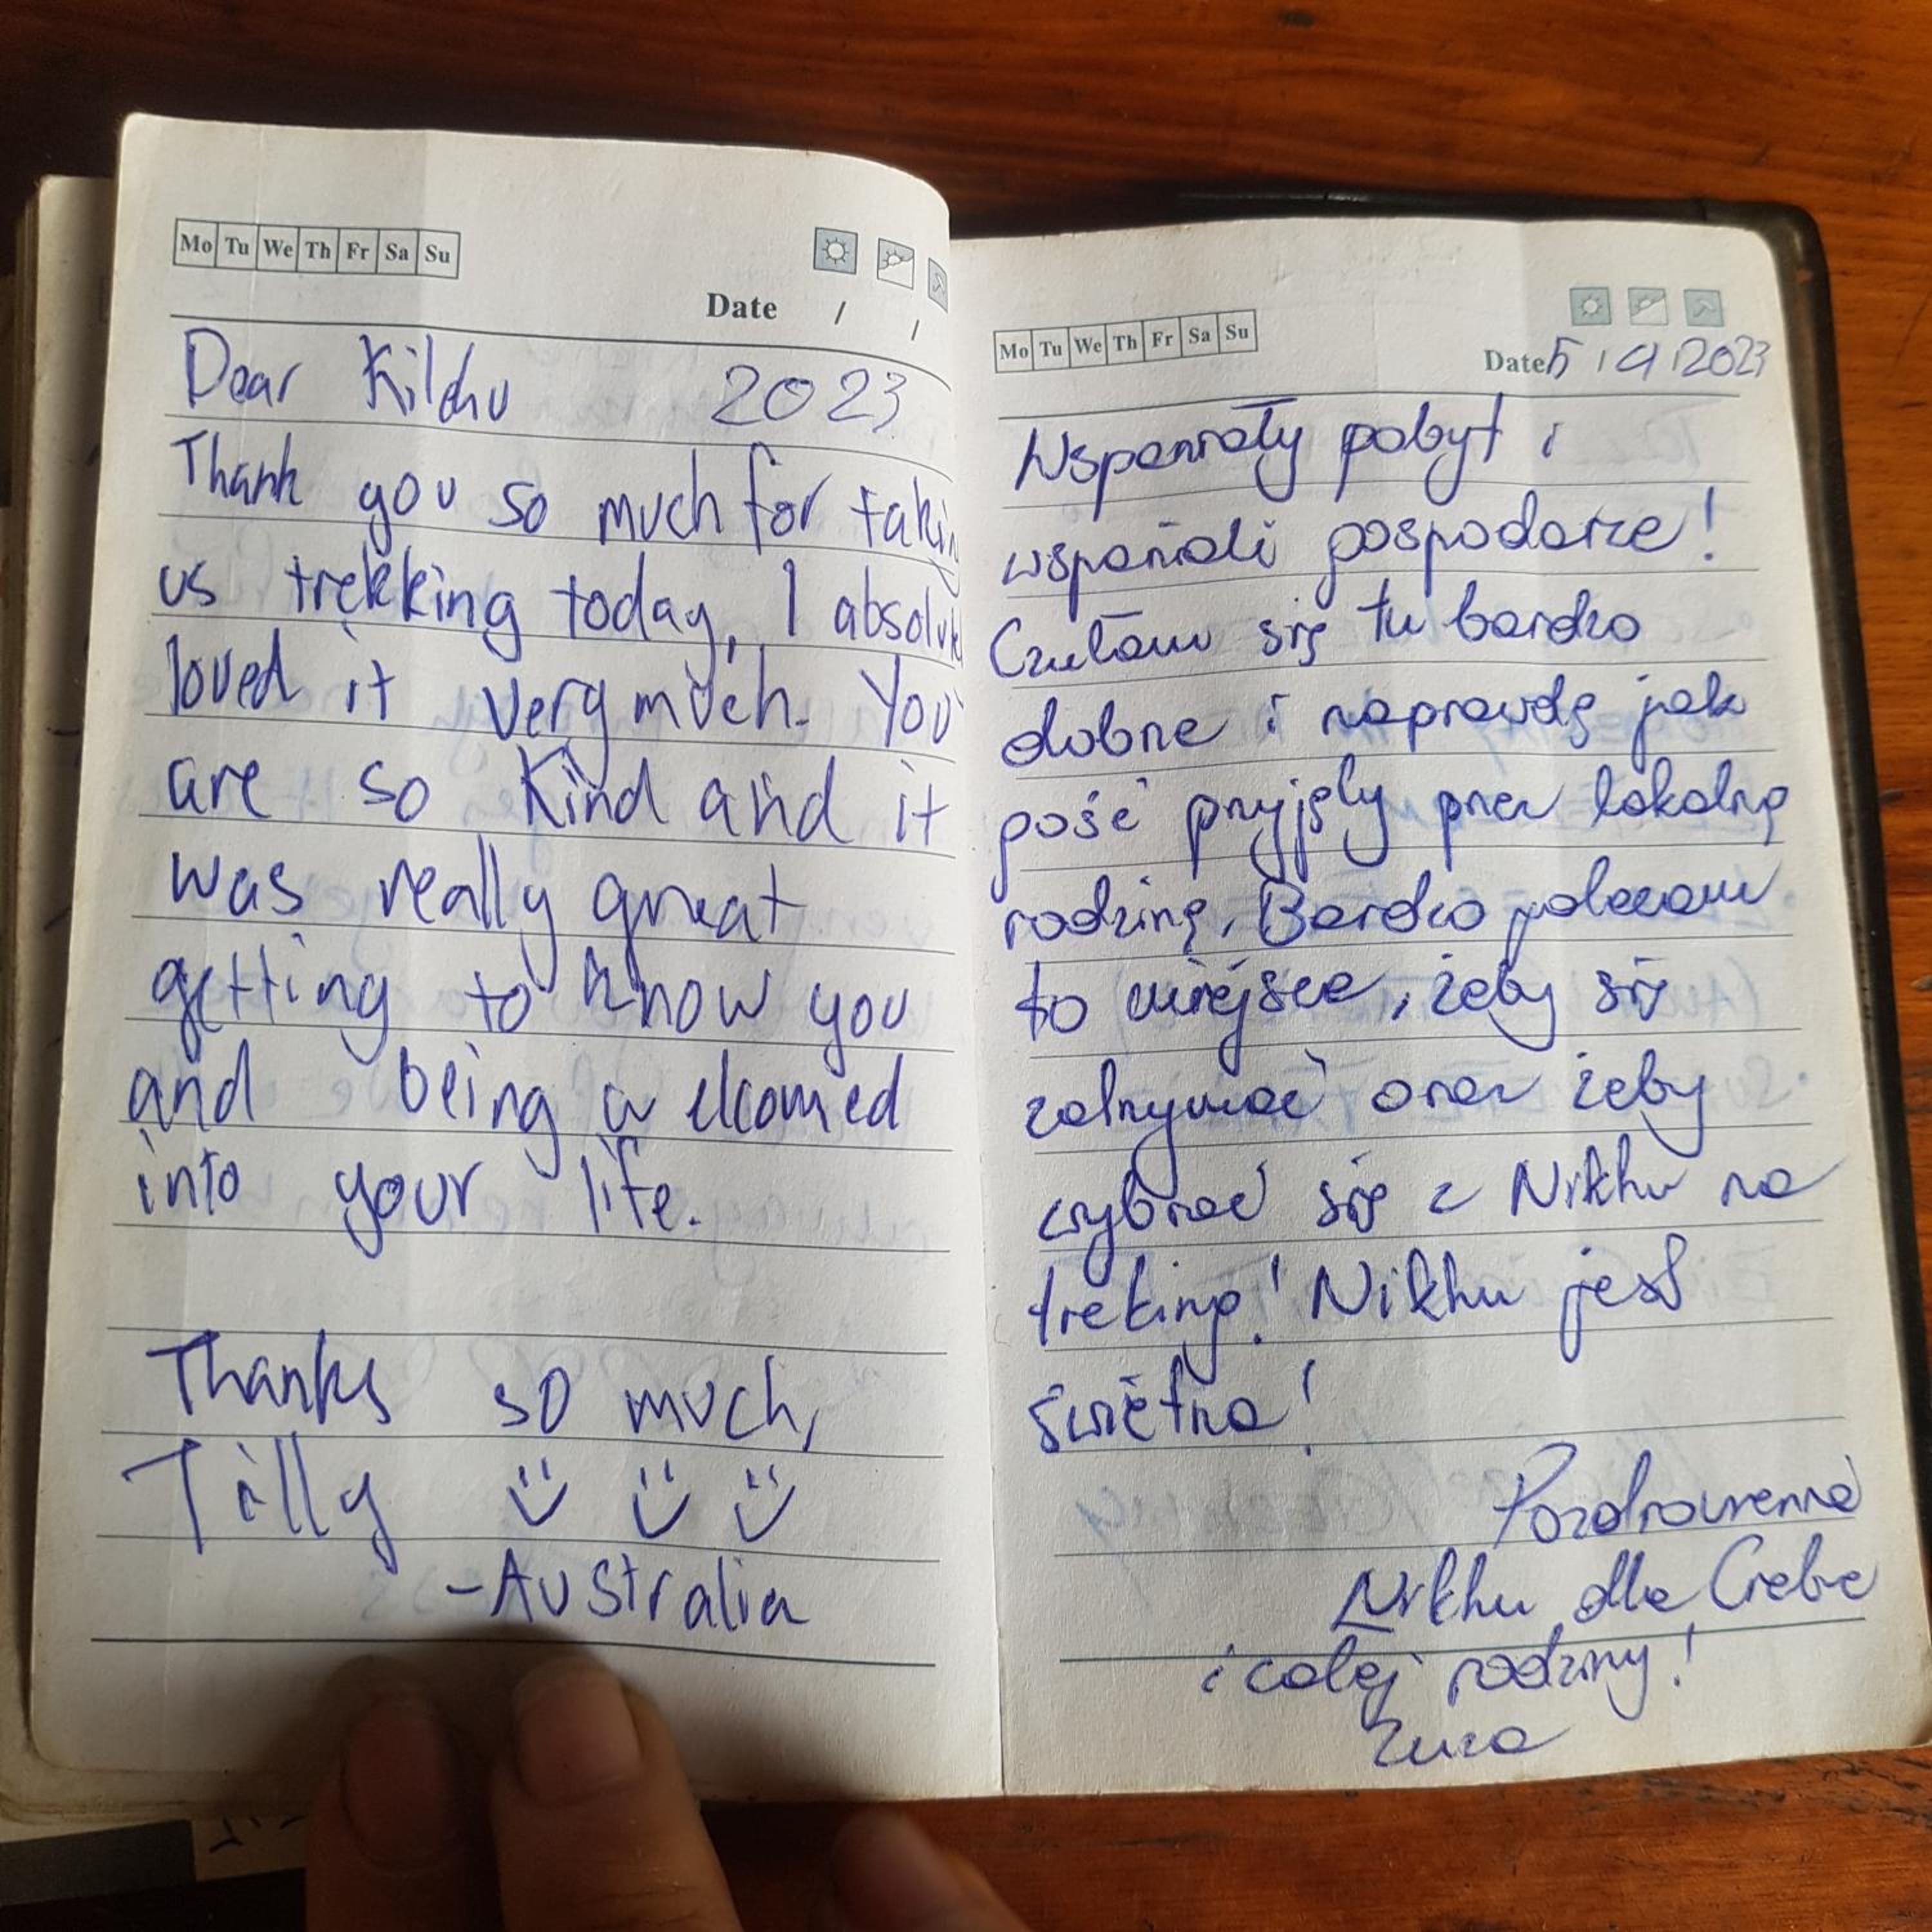 Mo Tu We Th Fr Sa Su
Date / /
Dear Kildhu 2023
Thank you so much for takin
us trekking today, I absolute
loved it very much. You
are so kind and it
was really great
getting to know you
and being welcomed
into your life.
Thanks so much,
Tilly
-Australia
Mo Tu We Th Fr Sa Su
Date 5 / 9 / 2023
Wspaniały pobyt i
wspaniali gospodarze!
Czułam się tu bardzo
dobrze i naprawdę jak
gość przyjęty przez lokalną
rodzinę. Bardzo polecam
to miejsce, żeby się
zatrzymać oraz żeby
wybrać się z Nikhu na
treking! Nikhu jest
świetna!
Pozdrowienia
Nikhu dla Ciebie
i całej rodziny!
Zuza